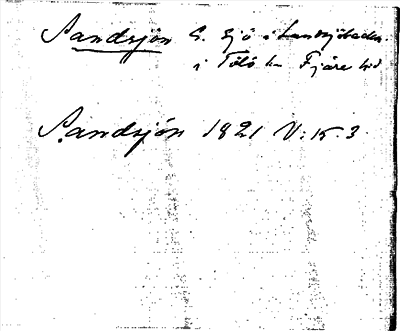 Sandsjön S. sjö i Landsjöbacka.
i Tölö sn Fjäre hd
Sandsjön 1821 V:15.3.